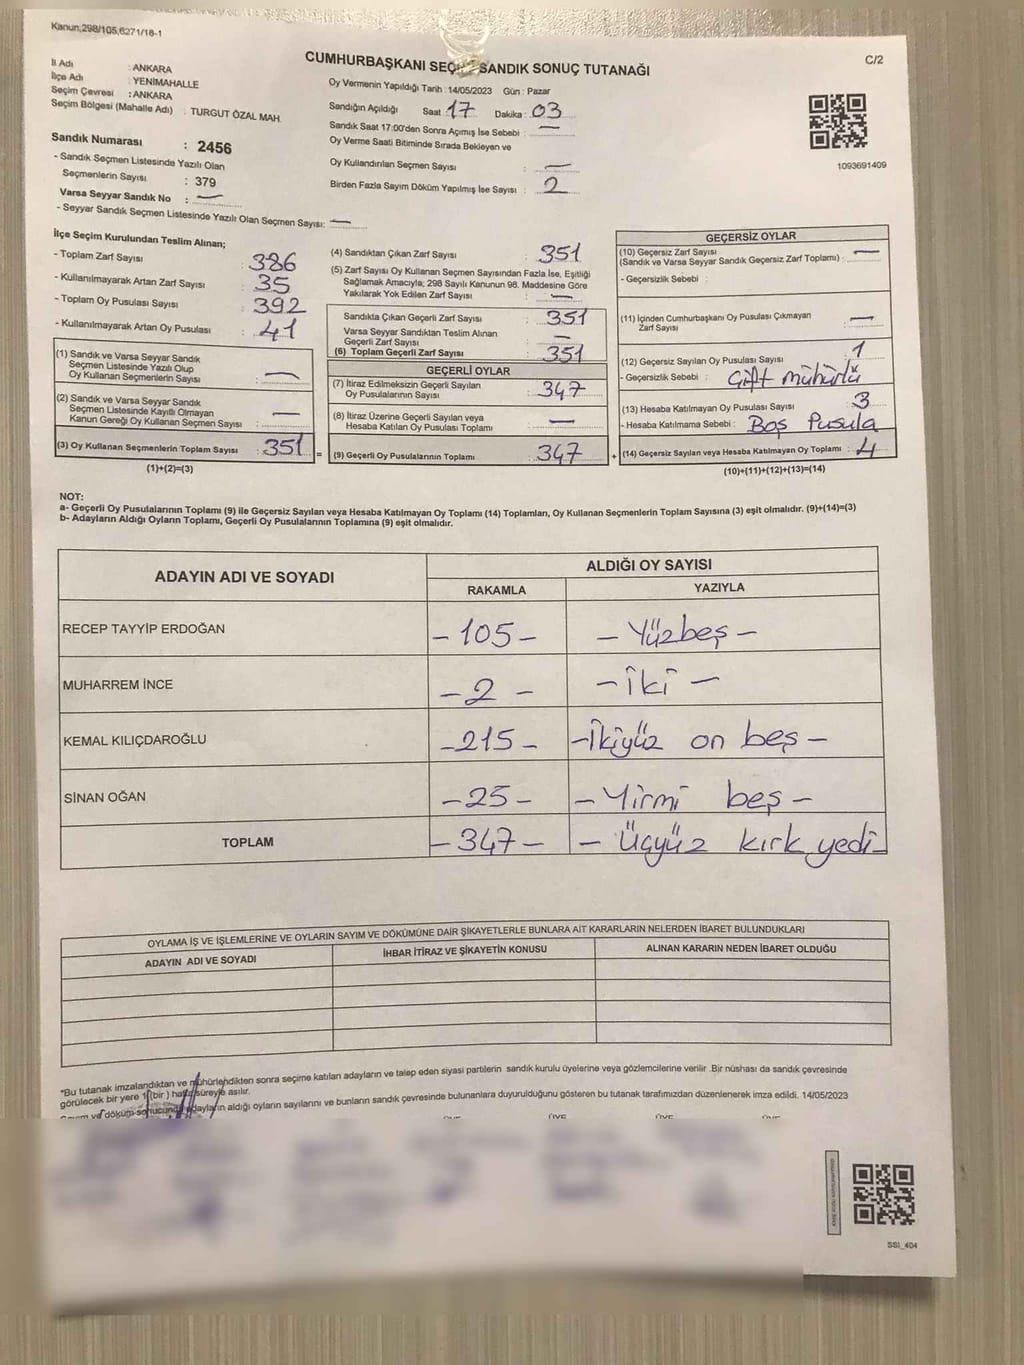 Kanun:298/105,6271/18-1
C/2
CUMHURBAŞKANI SEÇ SANDIK SONUÇ TUTANAĞI
İl Adı : ANKARA
İlçe Adı : YENİMAHALLE
Seçim Çevresi : ANKARA
Seçim Bölgesi (Mahalle Adı) : TURGUT ÖZAL MAH.
Sandık Numarası : 2456
- Sandık Seçmen Listesinde Yazılı Olan
Seçmenlerin Sayısı : 379
Varsa Seyyar Sandık No : —
- Seyyar Sandık Seçmen Listesinde Yazılı Olan Seçmen Sayısı: —
Oy Vermenin Yapıldığı Tarih : 14/05/2023 Gün : Pazar
Sandığın Açıldığı Saat 17 Dakika : 03
Sandık Saat 17:00'den Sonra Açımış İse Sebebi : —
Oy Verme Saati Bitiminde Sırada Bekleyen ve
Oy Kullandırılan Seçmen Sayısı : —
Birden Fazla Sayım Döküm Yapılmış İse Sayısı : 2
1093691409
İlçe Seçim Kurulundan Teslim Alınan;
- Toplam Zarf Sayısı : 386
- Kullanılmayarak Artan Zarf Sayısı : 35
- Toplam Oy Pusulası Sayısı : 392
- Kullanılmayarak Artan Oy Pusulası : 41
(1) Sandık ve Varsa Seyyar Sandık
Seçmen Listesinde Yazılı Olup
Oy Kullanan Seçmenlerin Sayısı : —
(2) Sandık ve Varsa Seyyar Sandık
Seçmen Listesinde Kayıtlı Olmayan
Kanun Gereği Oy Kullanan Seçmen Sayısı : —
(3) Oy Kullanan Seçmenlerin Toplam Sayısı : 351 =
(1)+(2)=(3)
(4) Sandıktan Çıkan Zarf Sayısı : 351
(5) Zarf Sayısı Oy Kullanan Seçmen Sayısından Fazla İse, Eşitliği
Sağlamak Amacıyla; 298 Sayılı Kanunun 98. Maddesine Göre
Yakılarak Yok Edilen Zarf Sayısı : —
Sandıkta Çıkan Geçerli Zarf Sayısı : 351
Varsa Seyyar Sandıktan Teslim Alınan
Geçerli Zarf Sayısı : —
(6) Toplam Geçerli Zarf Sayısı : 351
GEÇERLİ OYLAR
(7) İtiraz Edilmeksizin Geçerli Sayılan
Oy Pusulalarının Sayısı : 347
(8) İtiraz Üzerine Geçerli Sayılan veya
Hesaba Katılan Oy Pusulası Toplamı : —
(9) Geçerli Oy Pusulalarının Toplamı : 347 +
GEÇERSİZ OYLAR
(10) Geçersiz Zarf Sayısı
(Sandık ve Varsa Seyyar Sandık Geçersiz Zarf Toplamı) : —
- Geçersizlik Sebebi :
(11) İçinden Cumhurbaşkanı Oy Pusulası Çıkmayan
Zarf Sayısı : —
(12) Geçersiz Sayılan Oy Pusulası Sayısı : 1
- Geçersizlik Sebebi : Çift mühürlü
(13) Hesaba Katılmayan Oy Pusulası Sayısı : 3
- Hesaba Katılmama Sebebi : Boş Pusula
(14) Geçersiz Sayılan veya Hesaba Katılmayan Oy Toplamı : 4
(10)+(11)+(12)+(13)=(14)
NOT:
a- Geçerli Oy Pusulalarının Toplamı (9) ile Geçersiz Sayılan veya Hesaba Katılmayan Oy Toplamı (14) Toplamları, Oy Kullanan Seçmenlerin Toplam Sayısına (3) eşit olmalıdır. (9)+(14)=(3)
b- Adayların Aldığı Oyların Toplamı, Geçerli Oy Pusulalarının Toplamına (9) eşit olmalıdır.
ADAYIN ADI VE SOYADI
ALDIĞI OY SAYISI
RAKAMLA YAZIYLA
RECEP TAYYİP ERDOĞAN - 105 - - Yüzbeş -
MUHARREM İNCE - 2 - - İki -
KEMAL KILIÇDAROĞLU - 215 - - İkiyüz on beş -
SİNAN OĞAN - 25 - - Yirmi beş -
TOPLAM - 347 - - Üçyüz kırk yedi -
OYLAMA İŞ VE İŞLEMLERİNE VE OYLARIN SAYIM VE DÖKÜMÜNE DAİR ŞİKAYETLERLE BUNLARA AİT KARARLARIN NELERDEN İBARET BULUNDUKLARI
ADAYIN ADI VE SOYADI İHBAR İTİRAZ VE ŞİKAYETİN KONUSU ALINAN KARARIN NEDEN İBARET OLDUĞU
"Bu tutanak imzalandıktan ve mühürlendikten sonra seçime katılan adayların ve talep eden siyasi partilerin sandık kurulu üyelerine veya gözlemcilerine verilir .Bir nüshası da sandık çevresinde
görülecek bir yere 1(bir ) hafta süreyle asılır.
ve döküm sonucunda adayların aldığı oyların sayılarını ve bunların sandık çevresinde bulunanlara duyurulduğunu gösteren bu tutanak tarafımızdan düzenlenerek imza edildi. 14/05/2023
ÜYE ÜYE ÜYE ÜYE
SSI_404